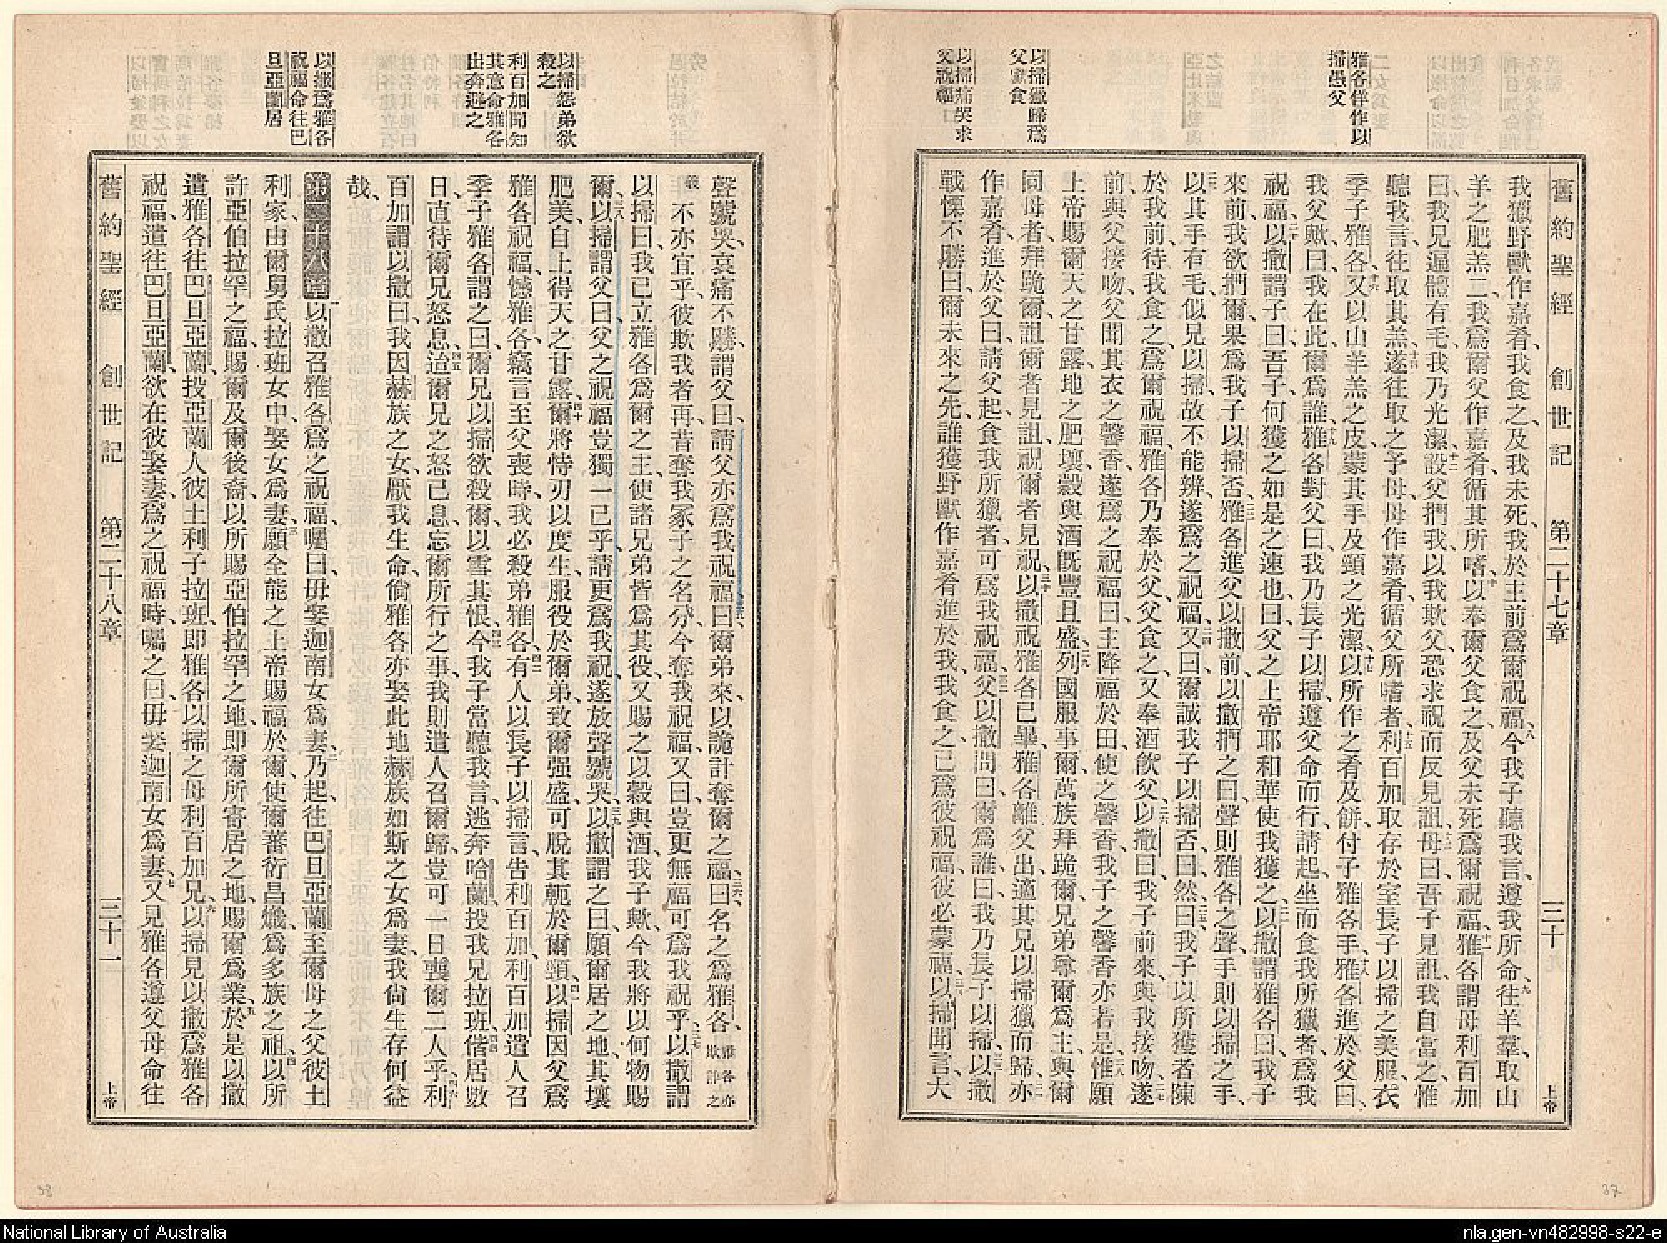 雅各佯作以
掃愚父
以掃獵歸爲
父勸食
以掃痛哭求
父祝福
舊約聖經 創世記 第二十七章 三十 上帝
我獵野獸作嘉肴我食之及我未死我於主前爲爾祝福今我子聽我言遵我所命往羊羣取山
羊之肥羔二我爲爾父作嘉肴循其所嗜以奉爾父食之及父未死爲爾祝福雅各謂母利百加
曰我兄遍體有毛我乃光潔設父捫我以我欺父恐求祝而反見詛母曰吾子見詛我自當之惟
聽我言往取其羔遂往取之予母母作嘉肴循父所嗜者利百加取存於室長子以掃之美服衣
季子雅各又以山羊羔之皮蒙其手及頸之光潔以所作之肴及餅付子雅各手雅各進於父曰
我父歟曰我在此爾爲誰雅各對父曰我乃長子以掃遵父命而行請起坐而食我所獵者爲我
祝福以撒謂子曰吾子何獲之如是之速也曰父之上帝耶和華使我獲之以撒謂雅各曰我子
來前我欲捫爾果爲我子以掃否雅各進父以撒前以撒捫之曰聲則雅各之聲手則以掃之手
以其手有毛似兄以掃故不能辨遂爲之祝福又曰爾誠我子以掃否曰然曰我子以所獲者陳
於我前待我食之爲爾祝福雅各乃奉於父父食之又奉酒飲父以撒曰我子前來與我接吻遂
前與父接吻父聞其衣之馨香遂爲之祝福曰主降福於田使之馨香我子之馨香亦若是惟願
上帝賜爾天之甘露地之肥壤穀與酒旣豐且盛列國服事爾萬族拜跪爾兄弟尊爾爲主與爾
同母者拜跪爾詛爾者見詛祝爾者見祝以撒祝雅各已畢雅各離父出適其兄以掃獵而歸亦
作嘉肴進於父曰請父起食我所獵者可爲我祝福父以撒問曰爾爲誰曰我乃長子以掃以撒
戰慄不勝曰爾未來之先誰獲野獸作嘉肴進於我我食之已爲彼祝福彼必蒙福以掃聞言大
以掃怨弟欲
殺之
利百加聞知
其意命雅各
出奔避之
以撒爲雅各
祝福命往巴
旦亞蘭居
聲號哭哀痛不勝謂父曰請父亦爲我祝福曰爾弟來以詭計奪爾之福曰名之爲雅各雅各亦欺詐之
義不亦宜乎彼欺我者再昔奪我冢子之名分今奪我祝福又曰豈更無福可爲我祝乎以撒謂
以掃曰我已立雅各爲爾之主使諸兄弟皆爲其役又賜之以穀與酒我子歟今我將以何物賜
爾以掃謂父曰父之祝福豈獨一已乎請更爲我祝遂放聲號哭以撒謂之曰願爾居之地其壤
肥美自上得天之甘露爾將恃刃以度生服役於爾弟致爾强盛可脫其軛於爾頸以掃因父爲
雅各祝福憾雅各竊言至父喪時我必殺弟雅各有人以長子以掃言告利百加利百加遣人召
季子雅各謂之曰爾兄以掃欲殺爾以雪其恨今我子當聽我言逃奔哈蘭投我兄拉班偕居數
日直待爾兄怒息迨爾兄之怒已息忘爾所行之事我則遣人召爾歸豈可一日喪爾二人乎利
百加謂以撒曰我因赫族之女厭我生命倘雅各亦娶此地赫族如斯之女爲妻我尙生存何益
哉
第二十八章以撒召雅各爲之祝福囑曰毋娶迦南女爲妻乃起往巴旦亞蘭至爾母之父彼土
利家由爾舅氏拉班女中娶女爲妻願全能之上帝賜福於爾使爾蕃衍昌熾爲多族之祖以所
許亞伯拉罕之福賜爾及爾後裔以所賜亞伯拉罕之地卽爾所寄居之地賜爾爲業於是以撒
遣雅各往巴旦亞蘭投亞蘭人彼土利子拉班卽雅各以掃之母利百加兄以掃見以撒爲雅各
祝福遣往巴旦亞蘭欲在彼娶妻爲之祝福時囑之曰毋娶迦南女爲妻又見雅各遵父母命往
舊約聖經 創世記 第二十八章 三十一 上帝
National Library of Australia
nla.gen-vn482998-s22-e